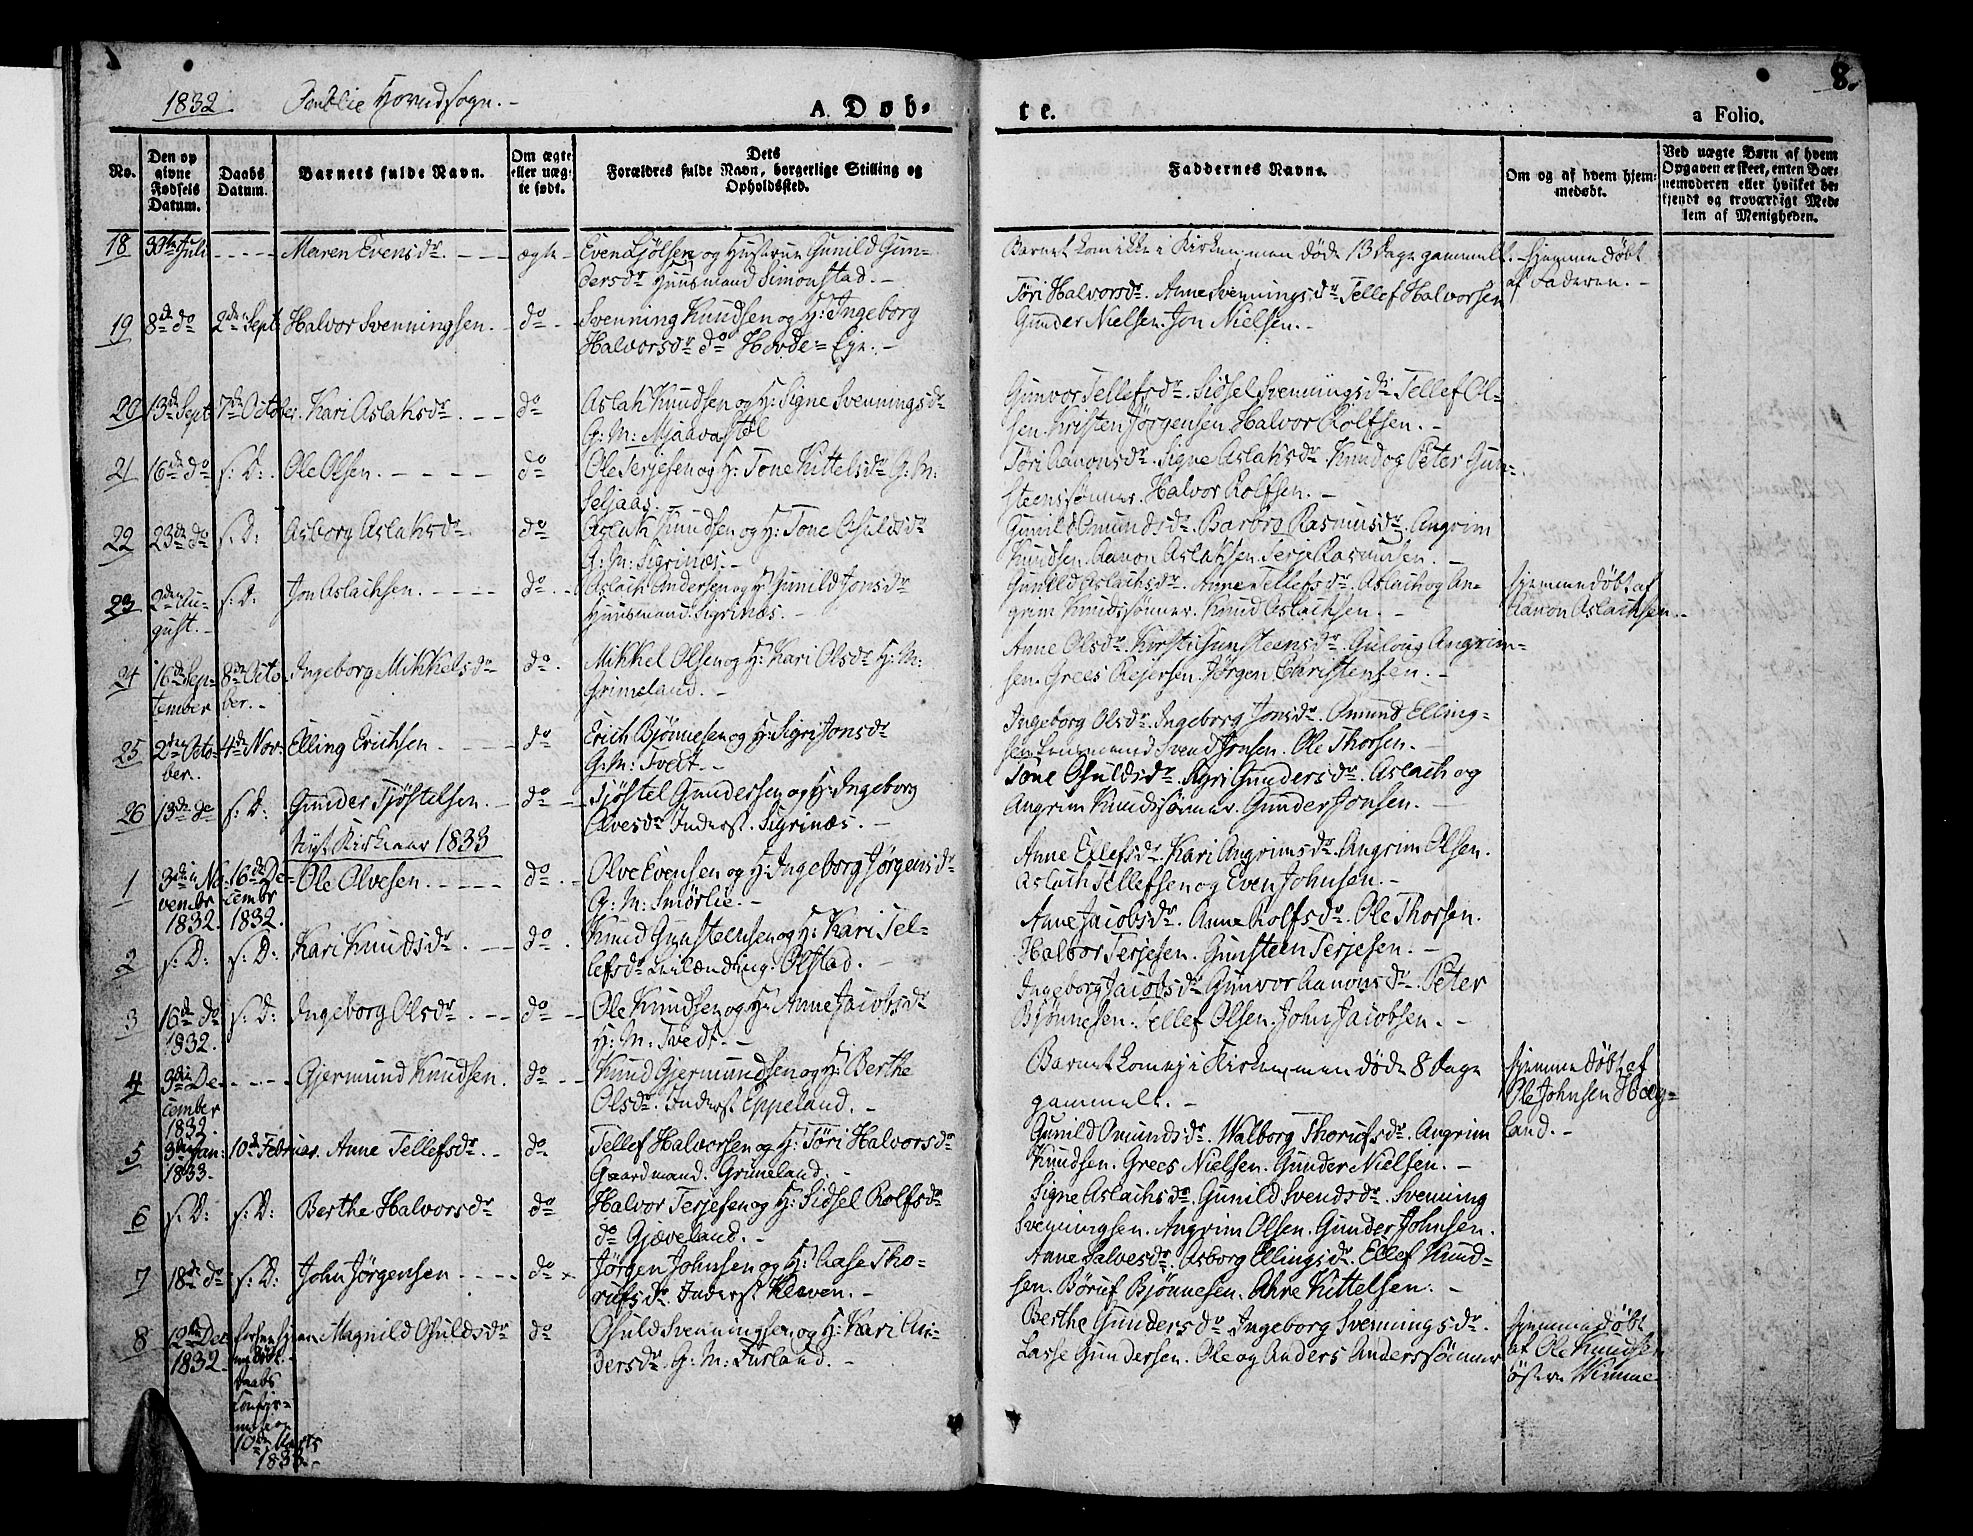 1832 Hovudsogn. A. Døb-
te. a Folio. 8.
No. Den opgivne Fødsels Datum. Daabs Datum. Barnets fulde Navn. Om ægte eller uægte født. Dets Forældres fulde Navn, borgerlige Stilling og Opholdssted.
Faddernes Navne. Om og af hvem hjemmedøbt. Ved uægte Børn af hvem Opgaven er skeet, enten Barnemoderen eller hvilket bekjendt og troværdigt Medlem af Menigheden.
18 Juli - - - - Maren Evensdr - - - ægte - Even og Hustrue Gunild Gun-
dersdr Huusmand Simonstad. -
Barnet kom ikke i Kirken, men døde 13 Dage gammelt. - hjemmedøbt
af Faderen. -
19 8de do 2den Sept. Halvor Svenningsen. - do - Svenning Knudsen og H: Ingeborg
Halvorsdr do Hovde-Eye. -
Töri Halvorsdr. Anne Svenningsdr. Tellef Halvorsen
Gunder Nielsen. Jon Nielsen. -
20 13de Sept 7de October. Kari Aslaksdr. - - do Aslak Knudsen og H: Signe Svenningsdr
G: M: Mjaavastöl
Gunvor Tellefsdr. Sidsel Svenningsdr. Tellef Ol-
sen. Kristen Jørgensen Halvor Rolfsen. -
21 16de do s: D: Ole Olsen. - - - - do Ole Terjesen og H: Tone Kittelsdr G: M:
Seljaas. -
Töri Aanonsdr. Signe Aslaksdr. Knud og Peter Gun-
steensønner. Halvor Rolfsen. -
22 23de do s: D: Asborg Aslaksdr do Aslak Knudsen og H: Tone Osuldsdr
G: M: Sigrinæs. -
Gunild Omundsdr. Barbro Rasmusdr. Angrim
Knudsen. Aanon Aslaksen. Terje Rasmusen. -
23 2den Au-
gust. - s: D: Jon Aslachsen. - - - - do. - Aslach Andersen og H: Gunild Jonsdr
Huusmand Sigrinæs. -
Gunild Aslachsdr. Anne Tellefsdr. Aslach og An-
grim Knudssønner. Knud Aslachsen. -
hjemmedøbt af
Aanon Aslachsen. -
24 16de Sep-
tember 8de Octo-
ber. - Ingeborg Mikkelsdr do. Mikkel Olsen og H: Kari Olsdr H: M:
Grimeland. -
Anne Olsdr. Kirsti Gunsteensdr. Angrim-
sen. Grees Rejersen. Jørgen Christensen. -
25 2den Octo-
ber. 4de Nov: Elling Erichsen. - - - do Erich Bjönnesen og H: Sigri Jonsdr
G: M: Tvedt. -
Ingeborg Olsdr. Ingeborg Jonsdr. Omund Elling-
sen. Svend Jonsen. Ole Thorsen. -
26 13de do s: D: Gunder Tjöstelsen. - do - Tjöstel Gundersen og H: Ingeborg
Olvesdr. Inderst. Sigrinæs. -
Tone Osuldsdr. Gundersdr. Aslach og
Angrim Knudssønner. Gunder Jonsen. -
Nyt Kirkeaar 1833
1 3die No-
vembr
1832. 16de De-
cembr
1832. Ole Olvesen. - - - - do. - Olve Evensen og H: Ingeborg Jørgensdr
G: M: Smörlie. -
Anne Ellefsdr. Kari Angrimsdr. Angrim Olsen.
Aslach Tellefsen og Even Johnsen. -
2 s: D: s: D: Kari Knudsdr. - - do. Knud Gunsteensen og H: Kari Tel-
lefsdr Leilænding. Ölstad. -
Anne Jacobsdr. Anne Rolfsdr. Ole Thorsen.
Halvor Terjesen. Gunsteen Terjesen. -
3 16de do
1832. s: D: Ingeborg Olsdr. - - do - - Ole Knudsen og H: Anne Jacobsdr
H: M: Tvedt. -
Ingeborg Jacobsdr. Gunvor Aanonsdr. Peter
Bjönnesen. Tellef Olsen. John Jacobsen. -
4 3die De-
cember
1832. - - - - Gjermund Knudsen. do. - - Knud Gjermundsen og H: Berthe
Olsdr. Inderst Eppeland. -
Barnet kom ej i Kirken, men døde 8 Dage
gammelt. -
hjemmedøbt af
Ole Johnsen Høey-
land. -
5 3die Jan:
1833. 10de Februar. Anne Tellefsdr. - do. Tellef Halvorsen og H: Töri Halvorsdr
Gaardmand. Grimeland. -
Gunild Omundsdr. Walborg Thorufsdr. Angrim
Knudsen. Grees Nielsen. Gunder Nielsen. -
6 s: D: s: D: Berthe Halvorsdr do Halvor Terjesen og H: Sidsel Rolfsdr
do Gjæveland. -
Signe Aslachsdr. Gunild Svendsdr. Svenning
Svenningsen. Angrim Olsen. Gunder Johnsen.
7 18de do s: D: John Jørgensen - - - - do Jørgen Johnsen og H: Aase Tho-
rufsdr. Inderst Kleven. -
Anne Salvesdr. Asborg Ellingsdr. Ellef Knud-
sen. Böruf Bjönnesen. Kittelsen. -
8 12te Dec
1832
Daabs
10de Marts
1833. - Magnild Osuldsdr do Osuld Svenningsen og H: Kari An-
dersdr. G: M: Furland. -
Berthe Gundersdr. Ingeborg Svenningsdr.
Lasse Gundersen. Ole og Anders Anderssønner
hjemmedøbt
af Ole Knudsen
östre Wimme